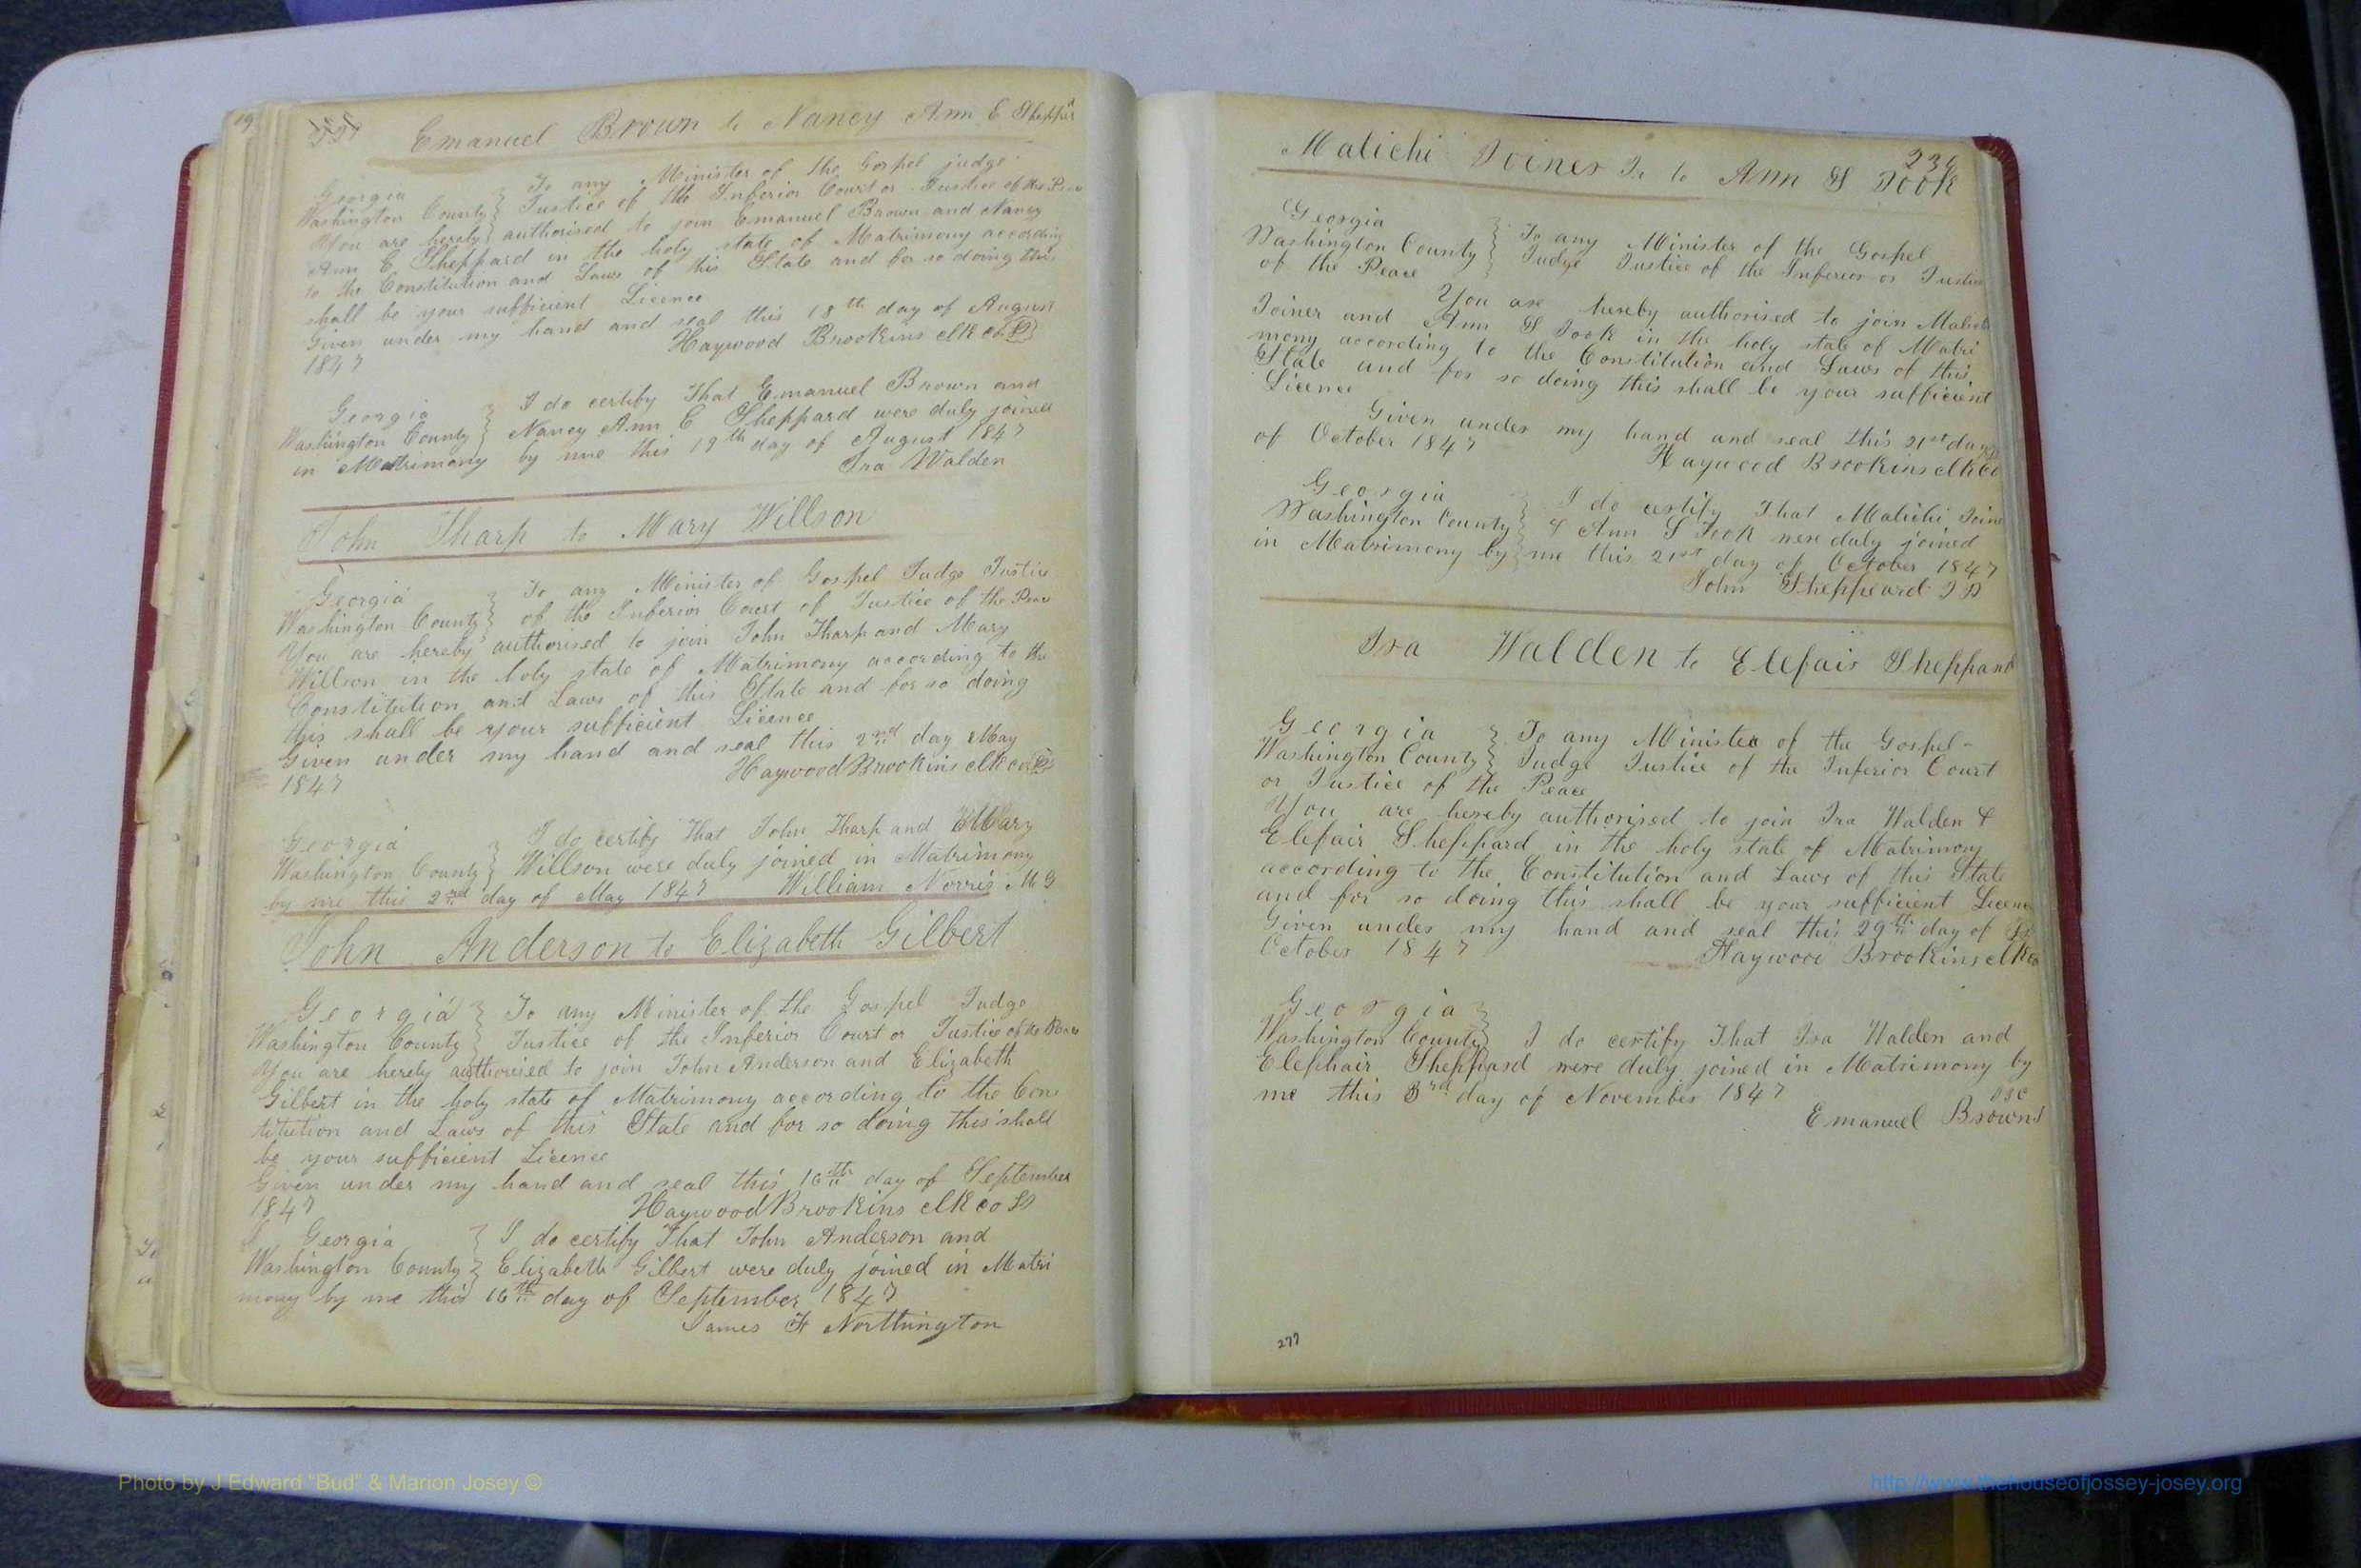 19
229
Emanuel Brown to Nancy Ann E Sheppard
Georgia } To any Minister of the Gospel judge
Washington County } Justice of the Inferior Court or Justice of the Peace
You are hereby authorised to join Emanuel Brown and Nancy
Ann E Sheppard in the holy state of Matrimony according
to the Constitution and Laws of this State and for so doing this
shall be your sufficient Licence
Given under my hand and seal this 18th day of August
1847 Haywood Brookins clk co
Georgia } I do certify That Emanuel Brown and
Washington County } Nancy Ann E Sheppard were duly joined
in Matrimony by me this 19th day of August 1847
Ira Walden
John Tharp to Mary Willson
Georgia } To any Minister of Gospel Judge Justice
Washington County } of the Inferior Court of Justice of the Peace
You are hereby authorised to join John Tharp and Mary
Willson in the holy state of Matrimony according to the
Constitution and Laws of this State and for so doing
this shall be your sufficient Licence
Given under my hand and seal this 2nd day May
1847 Haywood Brookins clk co
Georgia } I do certify That John Tharp and Mary
Washington County } Willson were duly joined in Matrimony
by me this 2nd day of May 1847 William Norris M G
John Anderson to Elizabeth Gilbert
Georgia } To any Minister of the Gospel Judge
Washington County } Justice of the Inferior Court or Justice of the Peace
You are hereby authorised to join John Anderson and Elizabeth
Gilbert in the holy state of Matrimony according to the Cons
titution and Laws of this State and for so doing this shall
be your sufficient Licence
Given under my hand and seal this 16th day of September
1847 Haywood Brookins clk co
Georgia } I do certify That John Anderson and
Washington County } Elizabeth Gilbert were duly joined in Matri
mony by me this 16th day of September 1847
James H Northington
230
Malichi Joiner Jr to Ann S Took
Georgia } To any Minister of the Gospel
Washington County } Judge Justice of the Inferior or Justice
of the Peace
You are hereby authorised to join Malichi
Joiner and Ann S Took in the holy state of Matri
mony according to the Constitution and Laws of this
State and for so doing this shall be your sufficient
Licence
Given under my hand and seal this 21st day
of October 1847 Haywood Brookins clk co
Georgia } I do certify That Malichi Joiner
Washington County } & Ann S Took were duly joined
in Matrimony by me this 21st day of October 1847
John Sheppeard J P
Ira Walden to Elefair Sheppard
Georgia } To any Minister of the Gospel-
Washington County } Judge Justice of the Inferior Court
or Justice of the Peace
You are hereby authorised to join Ira Walden &
Elefair Sheppard in the holy state of Matrimony
according to the Constitution and Laws of this State
and for so doing this shall be your sufficient Licence
Given under my hand and seal this 29th day of
October 1847 Haywood Brookins clk co
Georgia }
Washington County } I do certify That Ira Walden and
Elephair Sheppard were duly joined in Matrimony by
me this 3rd day of November 1847
Emanuel Brown
277
Photo by J Edward "Bud" & Marion Josey ©
http://www.thehouseofjossey-josey.org